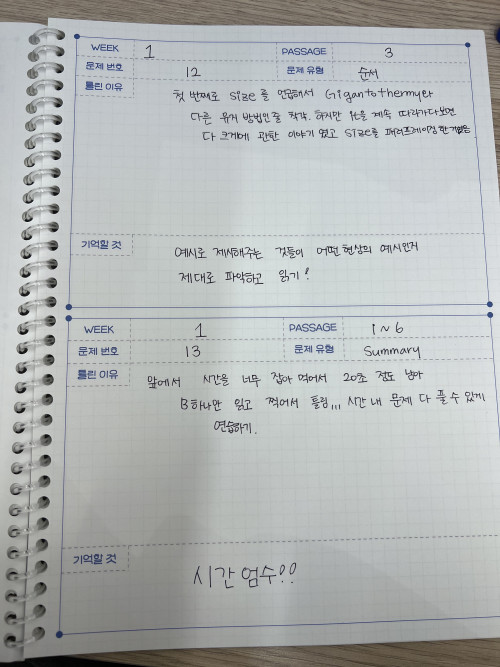 WEEK 1 PASSAGE 3
문제 번호 12 문제 유형 순서
틀린 이유
첫 번째로 size를 언급해서 Gigantothermy랑
다른 유지 방법인줄 착각. 하지만 it을 계속 따라가다보면
다 크기에 관한 이야기였고 size를 패러프레이징 한거였음
기억할 것
예시로 제시해주는 것들이 어떤 현상의 예시인지
제대로 파악하고 읽기!
WEEK 1 PASSAGE 1~6
문제 번호 13 문제 유형 Summary
틀린 이유
앞에서 시간을 너무 잡아 먹어서 20초 정도 남아
B하나만 읽고 찍어서 틀림,,, 시간 내 문제 다 풀 수 있게
연습하기.
기억할 것
시간 엄수!!